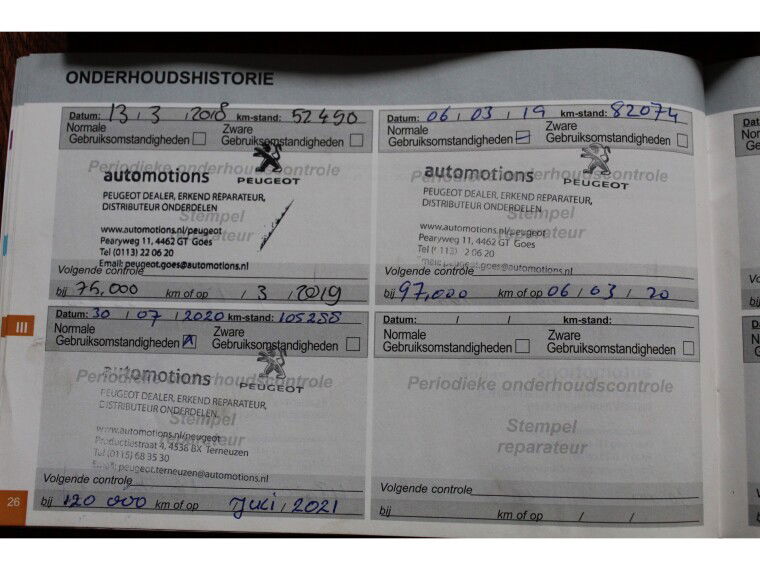 ONDERHOUDSHISTORIE
Datum: 13 / 3 / 2018 km-stand: 52490
Normale Gebruiksomstandigheden
Zware Gebruiksomstandigheden
Periodieke onderhoudscontrole
automotions
PEUGEOT
PEUGEOT DEALER, ERKEND REPARATEUR,
DISTRIBUTEUR ONDERDELEN
Stempel
reparateur
www.automotions.nl/peugeot
Pearyweg 11, 4462 GT Goes
Tel (0113) 22 06 20
Email: peugeot.goes@automotions.nl
Volgende controle
bij 75,000 km of op / 3 / 2019
Datum: 06 / 03 / 19 km-stand: 82074
Normale Gebruiksomstandigheden
Zware Gebruiksomstandigheden
Periodieke onderhoudscontrole
automotions
PEUGEOT
PEUGEOT DEALER, ERKEND REPARATEUR,
DISTRIBUTEUR ONDERDELEN
Stempel
reparateur
www.automotions.nl/peugeot
Pearyweg 11, 4462 GT Goes
Volgende controle
bij 97,000 km of op 06 / 03 / 20
Datum: 30 / 07 / 2020 km-stand: 105288
Normale Gebruiksomstandigheden
Zware Gebruiksomstandigheden
Periodieke onderhoudscontrole
automotions
PEUGEOT
PEUGEOT DEALER, ERKEND REPARATEUR,
DISTRIBUTEUR ONDERDELEN
Stempel
reparateur
www.automotions.nl/peugeot
Productiestraat 4, 4538 BX Terneuzen
Tel (0115) 68 35 30
Email: peugeot.terneuzen@automotions.nl
Volgende controle
bij 120 000 km of op Juli / 2021
Datum: / / km-stand:
Normale Gebruiksomstandigheden
Zware Gebruiksomstandigheden
Periodieke onderhoudscontrole
Stempel
reparateur
Volgende controle
bij km of op / /
III
26